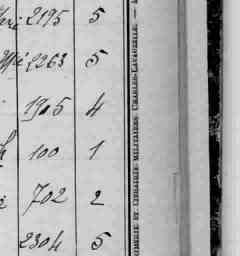 2195 5
2263 5
1905 4
100 1
702 2
2304 5
IMPRIMERIE ET LIBRAIRIE MILITAIRES CHARLES-LAVAUZELLE. —